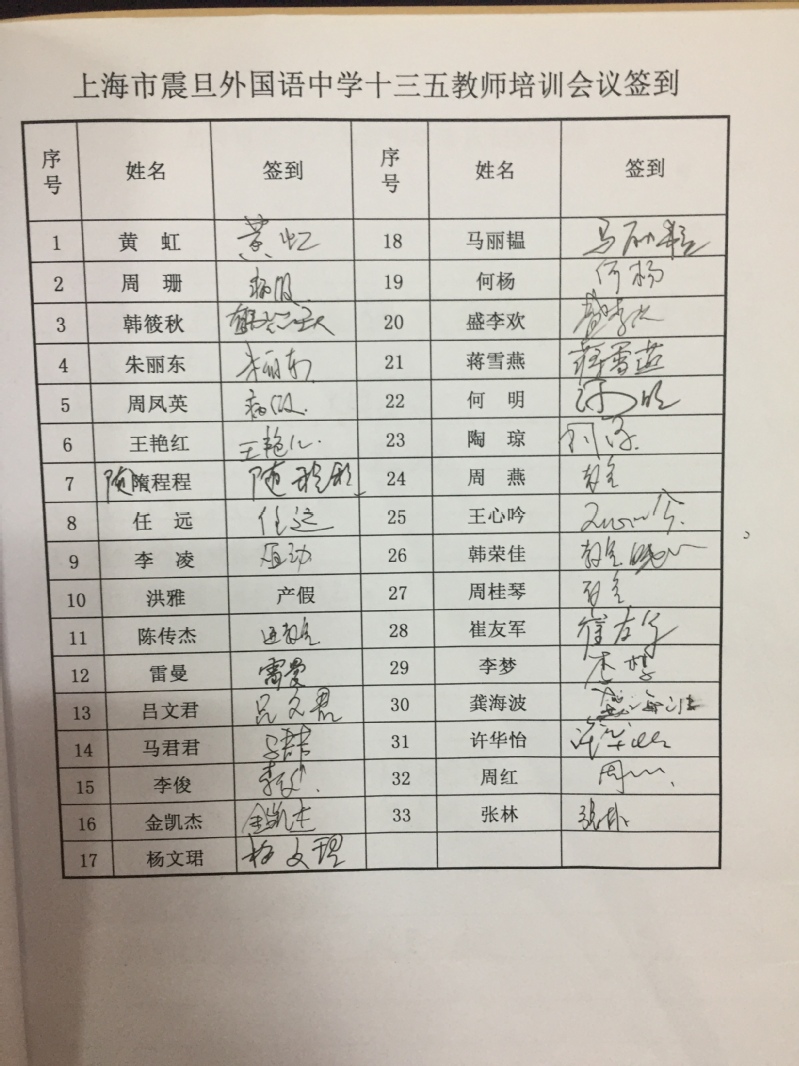 上海市震旦外国语中学十三五教师培训会议签到
序号 姓名 签到 序号 姓名 签到
1 黄虹 黄虹 18 马丽韫 马丽韫
2 周珊 病假 19 何杨 何杨
3 韩筱秋 20 盛李欢 盛李欢
4 朱丽东 朱丽东 21 蒋雪燕 蒋雪燕
5 周凤英 病假 22 何明 何明
6 王艳红 王艳红 23 陶琼
7 随隋程程 随程程 24 周燕
8 任远 任远 25 王心吟
9 李凌 26 韩荣佳
10 洪雅 产假 27 周桂琴
11 陈传杰 28 崔友军 崔友军
12 雷曼 雷曼 29 李梦 李梦
13 吕文君 吕文君 30 龚海波 龚海波
14 马君君 31 许华怡 许华怡
15 李俊 李俊 32 周红 周红
16 金凯杰 金凯杰 33 张林 张林
17 杨文珺 杨文珺